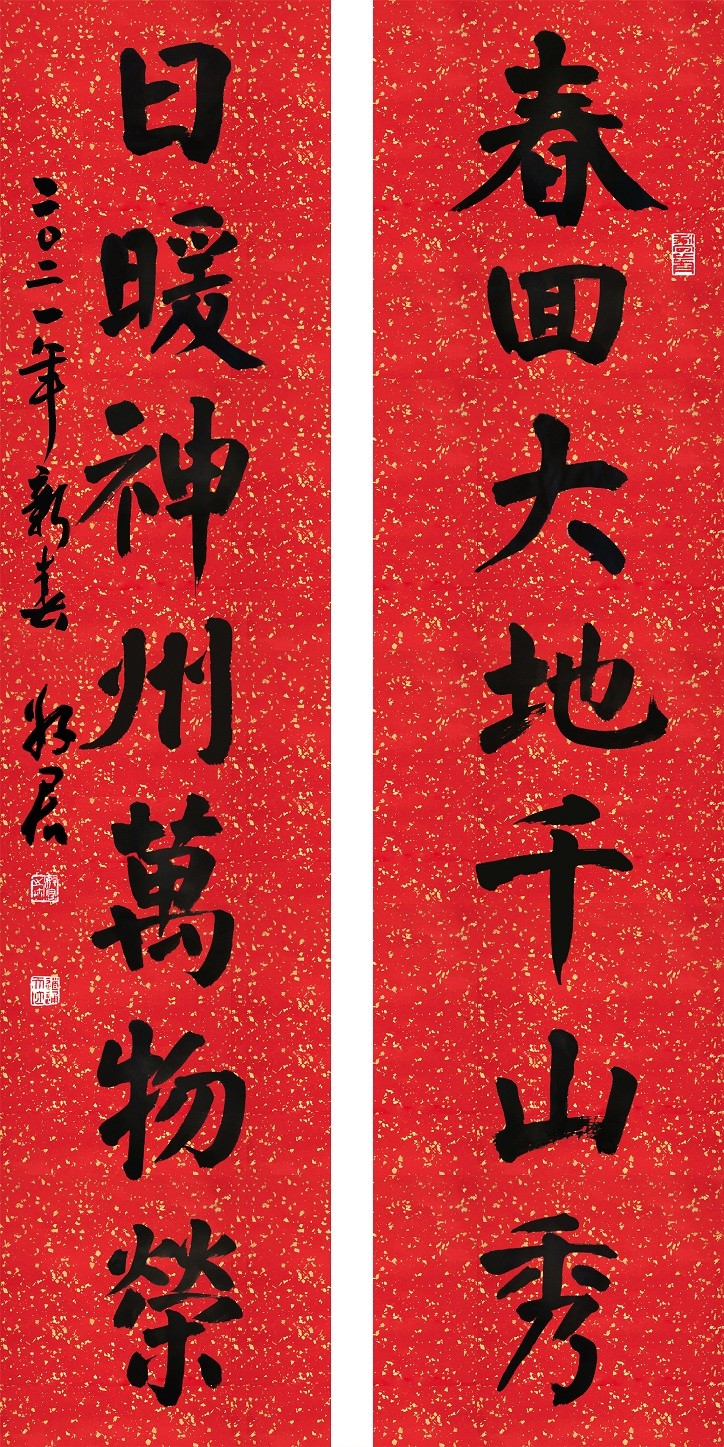 春回大地千山秀
日暖神州萬物榮
二〇二一年新春